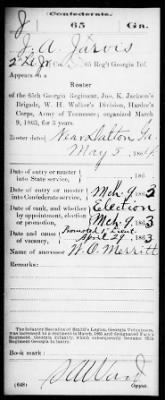 Confederate.
J 65 Ga.
J. A. Jarvis
2 Lt, Co. , 65 Reg't Georgia Inf.
Appears on a
Roster
of the 65th Georgia Regiment, Jos. K. Jackson's
Brigade, W. H. Walker's Division, Hardee's
Corps, Army of Tennessee; organized March
9, 1863, for 3 years.
Roster dated Near Dalton Ga
May 5, 1864
Date of entry or muster
into State service, 186
Date of entry or muster
into Confederate service, Mch. 9, 1863
Date of rank, and whether
by appointment, election
or promotion, Election
Mch. 9, 1863
Date and cause
of vacancy, Promoted 1 Lieut
April 29, 1863
Name of successor W. O. Merritt
Remarks:
The Infantry Battalion of Smith's Legion, Georgia Volunteers,
was increased to a regiment in March, 1863 and designated
Regiment, Georgia Infantry, which subsequently became this
Regiment Georgia Infantry.
Book mark:
(648)
Copyist.